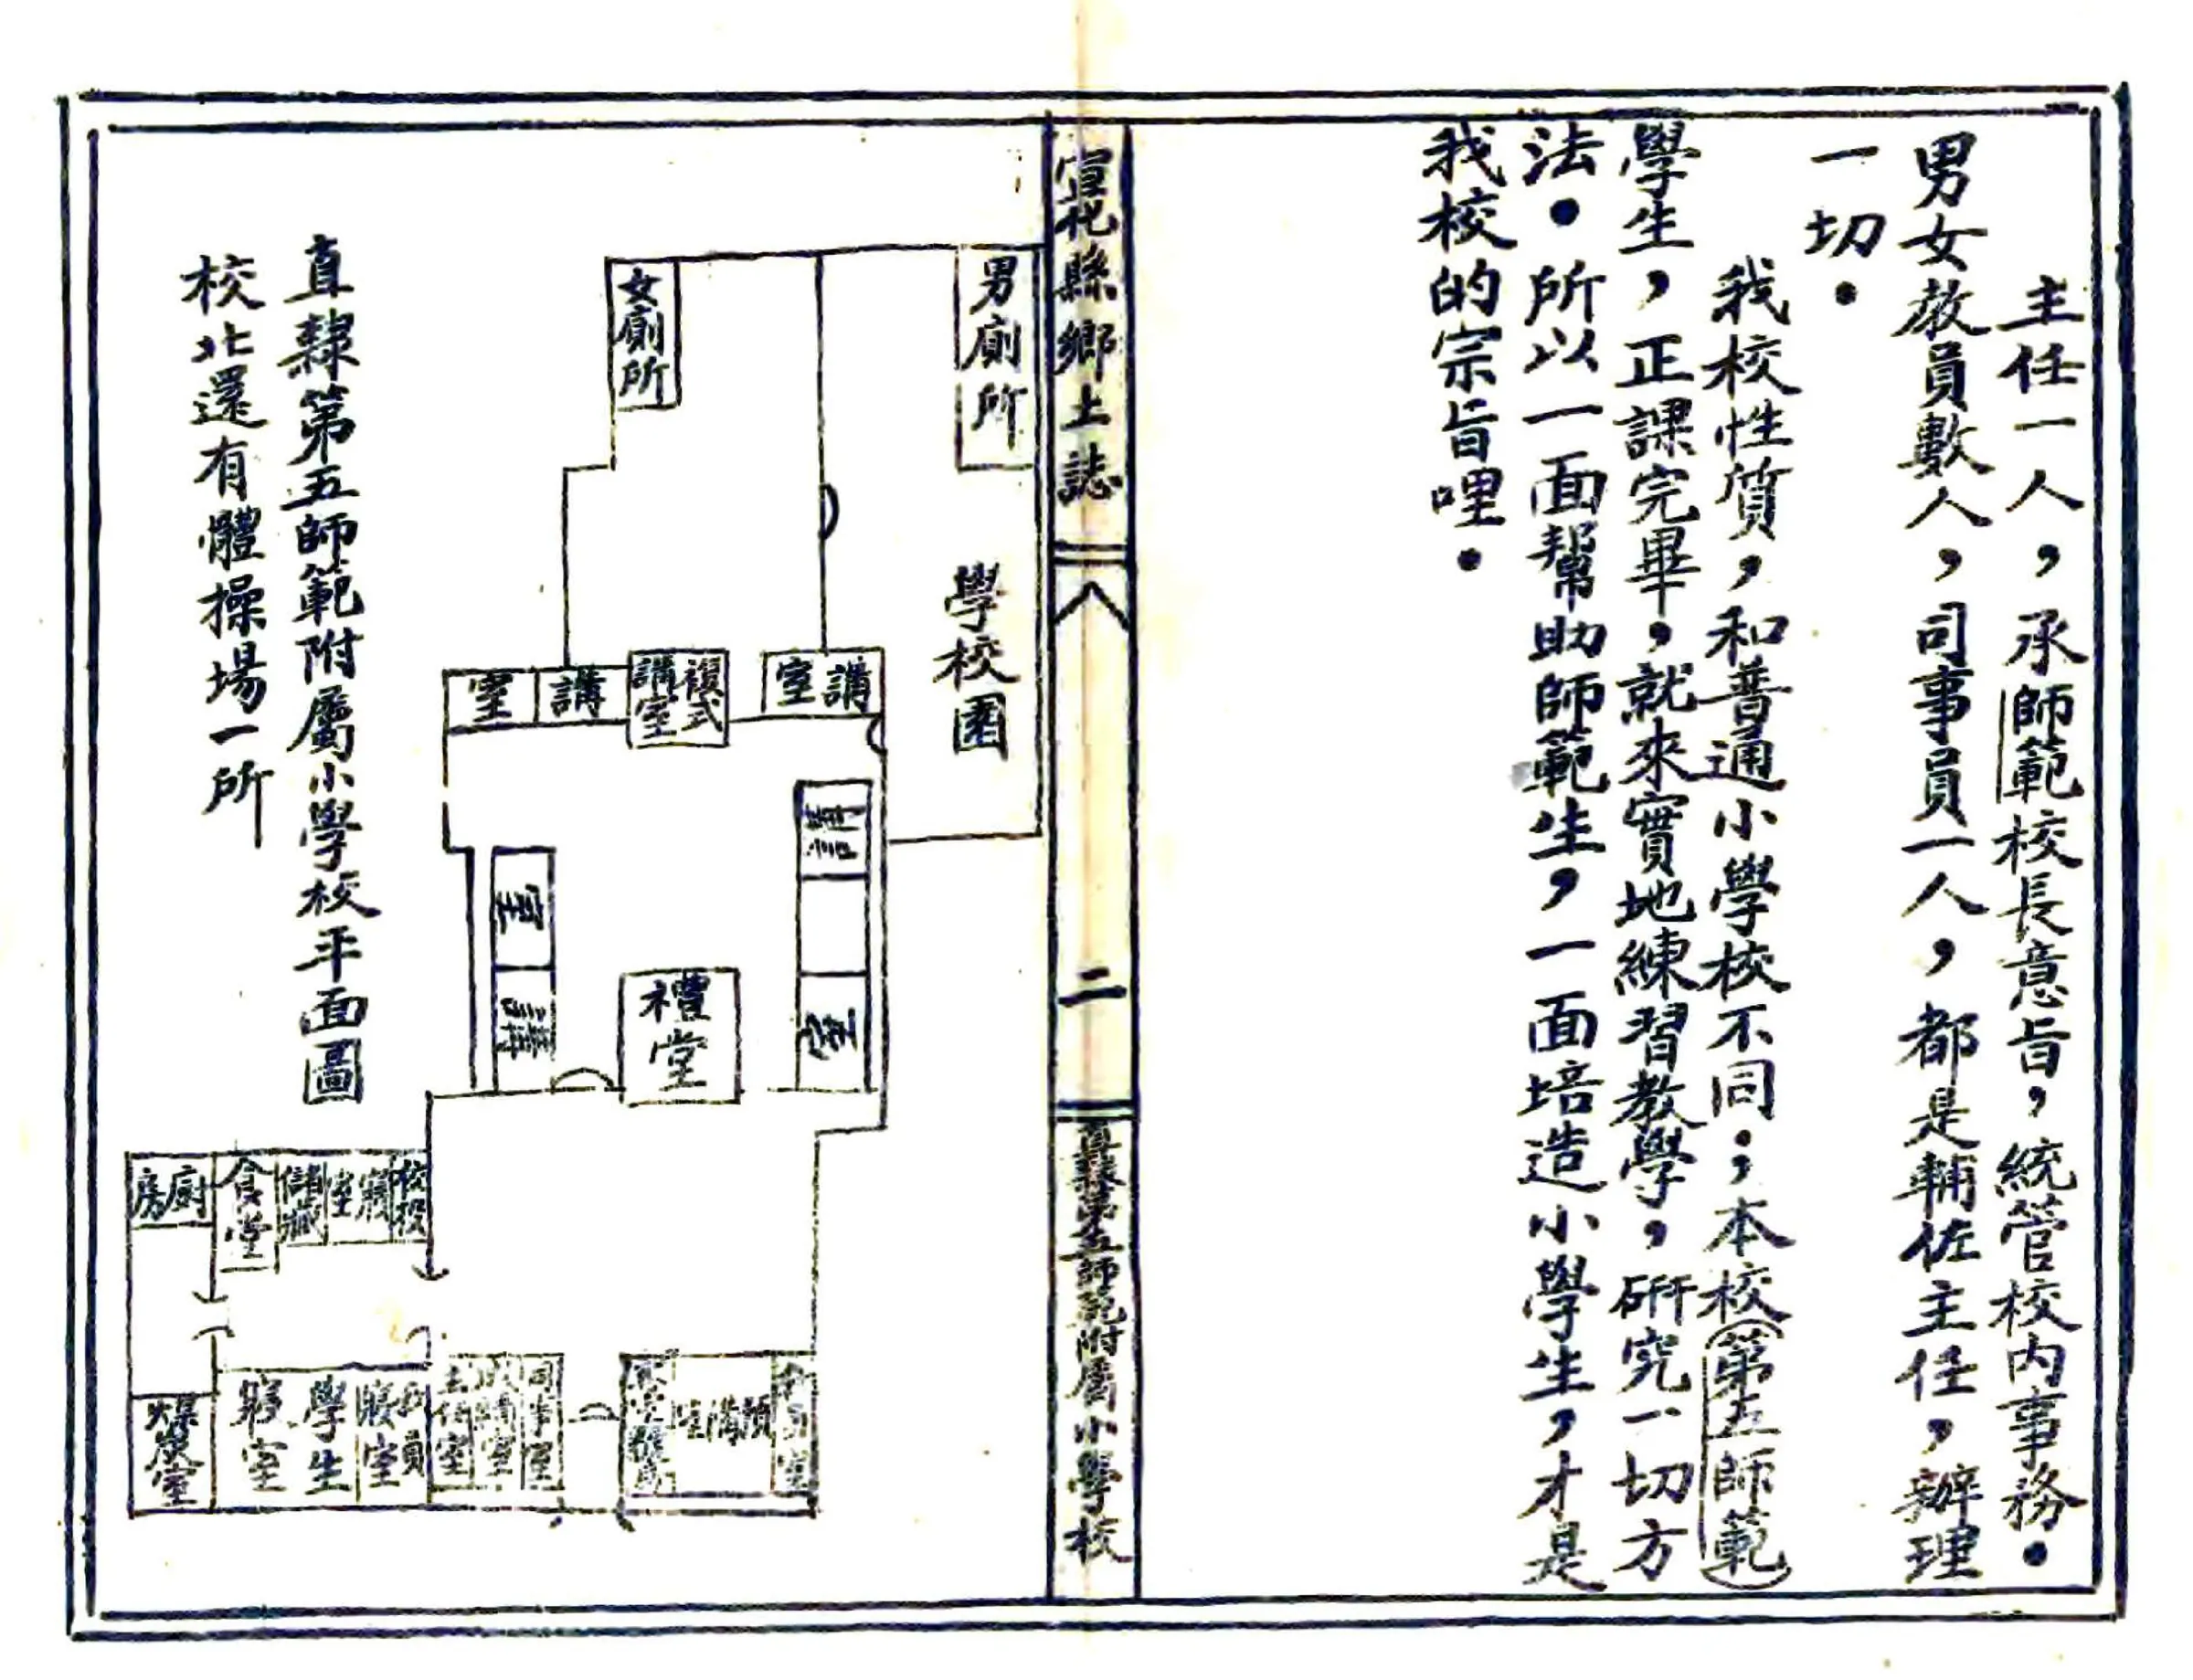 主任一人，承師範校長意旨，統管校内事務．
男女教員數人，司事員一人，都是輔佐主任，辦理
一切．
我校性質，和普通小學校不同；本校（第五師範）
學生，正課完畢，就來實地練習教學，研究一切方
法．所以一面幫助師範生，一面培造小學生，才是
我校的宗旨哩．
宣化縣鄉土誌
二
直隸第五師範附屬小學校
男廁所
女廁所
學校園
講室
複式講室
講室
講室
講室
禮堂
校役寢室
儲藏
食堂
廚房
預備
司事室
成績室
主任室
教員寢室
學生寢室
煤炭室
直隸第五師範附屬小學校平面圖
校北還有體操場一所